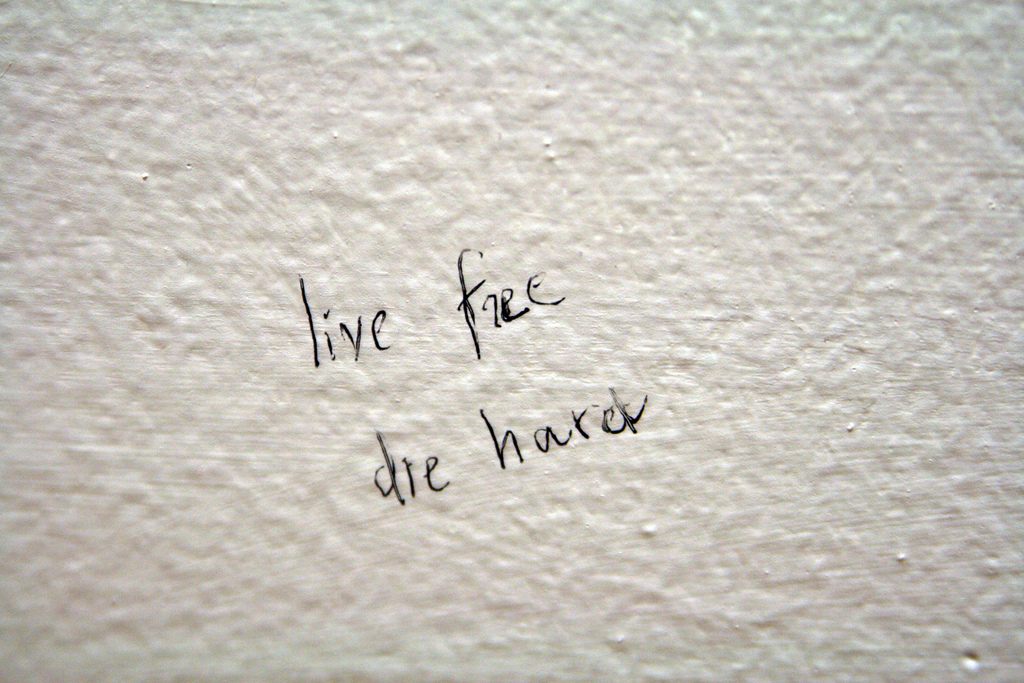 live free
die hard